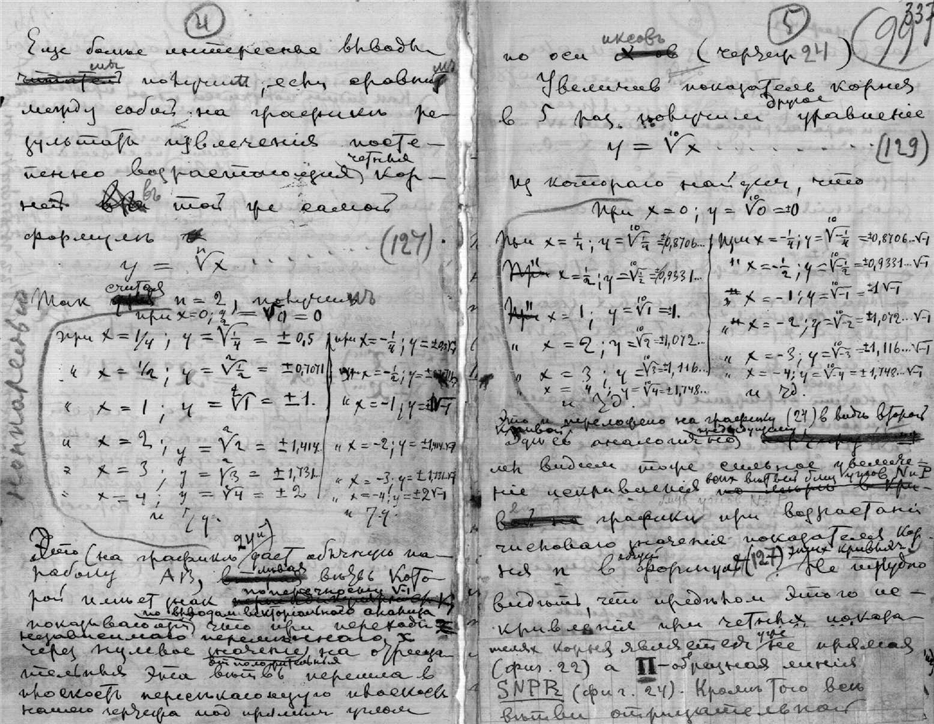 4
Еще более интересные выводы
мы получимъ, если сравнимъ
между собой на графикѣ ре-
зультаты извлеченія посте-
пенно возрастающихъ четныхъ кор-
ней въ той же самой
формулѣ
y = ⁿ√x . . . . . . (127)
Такъ считая n = 2, получимъ
при x=0; y = √0 = 0
при x = 1/4; y = ²√1/4 = ± 0,5 при x = -1/4; y =
" x = 1/2; y = ²√1/2 = ± 0,7071 x = -1/2; y =
" x = 1; y = √1 = ± 1. " x = -1; y = √-1
" x = 2; y = ²√2 = ± 1,414 " x = -2; y = ±1,414√-1
" x = 3; y = ²√3 = ± 1,731 " x = -3; y = ±1,731√-1
" x = 4; y = ²√4 = ± 2 " x = -4; y = ±2√-1
и т.д. " т.д.
Это (на графикѣ 24й) даетъ обычную па-
раболу AB, лѣвая вѣтвь кото-
рой имѣетъ знакъ поперечности √-1
по выводамъ векторіальнаго анализа
показывающій что при переходѣ
независимаго перемѣннаго x
черезъ нулевое значеніе на отрица-
тельныя эта вѣтвь перешла въ
плоскость пересѣкающую плоскость
нашего чертежа под прямымъ угломъ
5
337
997
по оси иксовъ (чертеж 24)
Увеличивъ показатель корня
въ 5 раз, получимъ другое уравненіе
y = ¹⁰√x . . . . . . (129)
изъ котораго найдемъ, что
При x = 0; y = ¹⁰√0 = ±0
При x = 1/4; y = ¹⁰√1/4 = ±0,8706... При x = -1/4; y = ¹⁰√-1/4 = ±0,8706...√-1
x = 1/2; y = ¹⁰√1/2 = ±0,9331... " x = -1/2; y = ¹⁰√-1/2 = ±0,9331...√-1
x = 1; y = ¹⁰√1 = ±1. " x = -1; y = ¹⁰√-1 = ±1√-1
" x = 2; y = ¹⁰√2 = ±1,072... " x = -2; y = ¹⁰√-2 = ±1,072...√-1
" x = 3; y = ¹⁰√3 = ±1,116... " x = -3; y = ¹⁰√-3 = ±1,116...√-1
" x = 4; y = ¹⁰√4 = ±1,148... " x = -4; y = ¹⁰√-4 = ±1,148...√-1
и т.д. и т.д.
Это изложено на графикѣ (24) въ видѣ второй
кривой. Здѣсь аналогично предыдущему
мы видимъ тоже сильное увеличе-
ніе искривленія всѣхъ вѣтвей близъ угловъ N и P
въ графики при возрастаніи
числоваго значенія показателя кор-
ня n въ общей формулѣ (127) этихъ кривыхъ. Не трудно
видѣть, что предѣломъ этого ис-
кривленія при четныхъ показа-
теляхъ корня является уже не прямая
(фиг. 22) а П-образная линія
SNPR (фиг. 24). Кромѣ того всѣ
вѣтви отрицательной